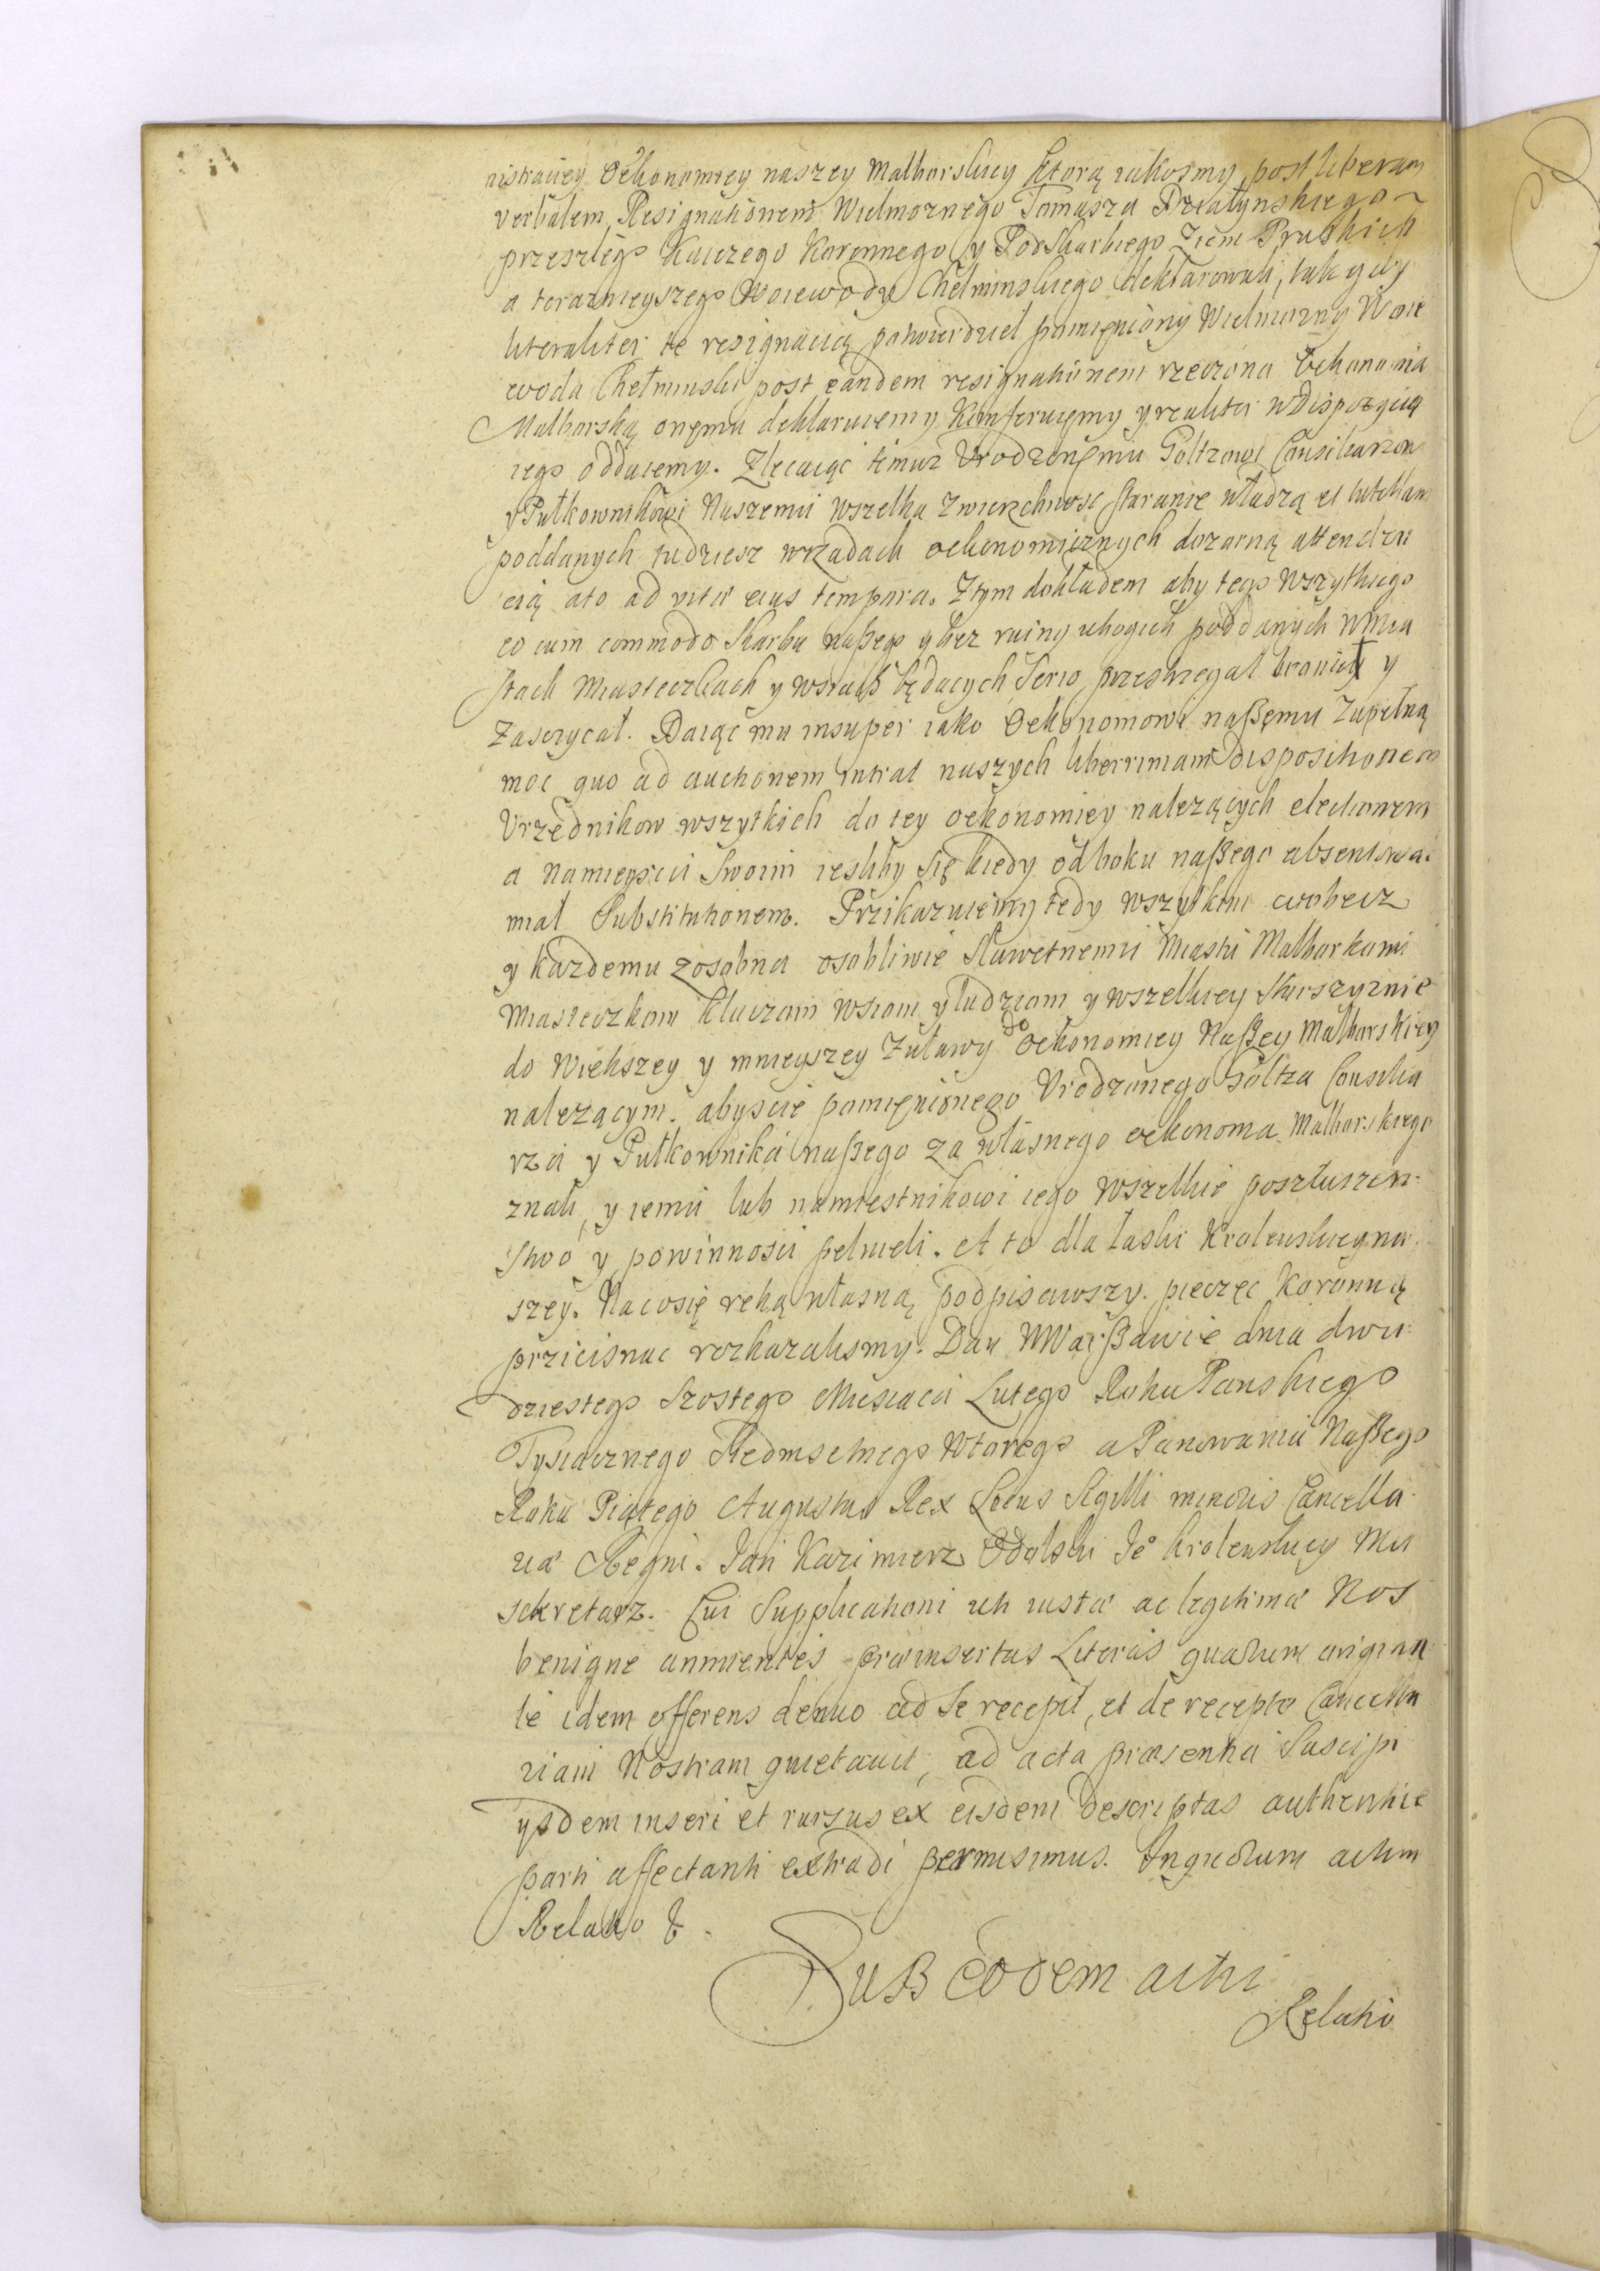 nistraciey Oekonomiey naszey Malborskiey ktorą iakosmy post liberam
verbalem Resignationem Wielmoznego Tomasza Działynskiego
przeszłego Kuczego Koronnego y Podskarbiego Ziem Pruskich
a teraznieyszego Woiewody Chełminskiego deklarowali, tak gdy
literaliter te resignacią potwierdzieł pomięniony Wielmozny Woie
woda Chełminski post eandem resignationem rzeczona Oekonomia
Malborską onęmu deklaruiemy Konferuięmy y realiter w Dispozycią
iego oddaiemy. Zlecaiąc temuz Urodzonęmu Goltzowi Consiliarzow
y Pułkownikowi Naszemu wszelka zwierzchność staranie władzą et tutelam
poddanych tudziesz wrzadach oekonomicznych dozorną attenden
cią ato ad vitæ eius tempora. Ztym dokładem aby tego wszytkiego
co cum commodo Skarbu naszego y bez ruiny ubogich poddanych w mia
stach Miasteczkach y wsiach będących Serio przestrzegał bronieł y
Zasczycał. Daiąc mu insuper iako Oekonomowi naszęmu zupełną
moc quo ad auctionem intrat naszych liberrimam dispositionem
Vrzędnikow wszytkich do tey oekonomiey nalezących electionem
a namieyscu Swoim iesliby się kiedy od boku naszego absentowa.
miał Substitutionem. Przikazuiemy tedy wszytkim wobecz
y kazdemu zosobna osobliwie Sławetnemu Miastu Malborkowi
Miasteczkom kluczom wsiom y ludziom y wszelkiey Starszyznie
do Większey y mnieyszey Zuławy do oekonomiey Naszey Malborskiey
nalezącym. abyscie pomięnionego Urodzonego Goltza Consilia
rza y Pułkownika naszego za własnego oekonoma Malborskiego
znali, y iemu lub namiestnikowi iego wszelkie poszłuszen-
stwo y powinnosci pełnieli. A to dla łaski Krolewskiey na-
szey. Na cosię reką własną podpisawszy. pieczęc Koronną
przicisnac rozkazalismy. Dan w Warszawie dnia dwu-
dziestego Szostego Miesiąca Lutego Roku Panskiego
Tysiacznego Siedmsetnego wtorego a Panowania Naszego
Roku Piątego Augustus Rex Locus Sigilli minoris Cancella-
riæ Regni. Jan Kazimierz Odolski Jº Krolewskiey Mci
sekretarz. Cui Supplicationi uti iustæ ac legitimæ Nos
benigne annuentes præinsertas Literas quarum origina-
le idem offerens denuo ad se recepit, et de recepto Cancella
riam Nostram quietavit, ad acta præsentia Suscipi
ysdem inseri et rursus ex eisdem descriptas authenticè
parti affectanti extradi permisimus. In quorum actum
Relatio &.
Sub eodem actu
Relatio